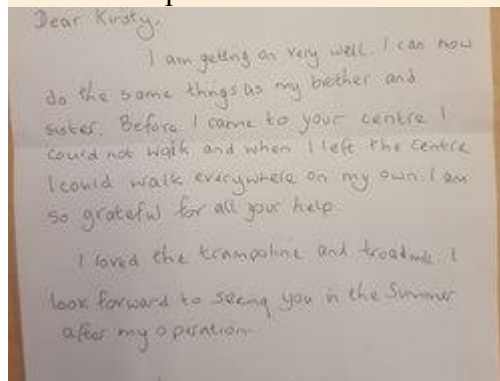 Dear Kirsty.
I am getting on very well. I can now
do the same things as my brother and
sister. Before I came to your centre I
could not walk and when I left the centre
I could walk everywhere on my own. I am
so grateful for all your help.
I loved the trampoline and treadmill. I
look forward to seeing you in the Summer
after my operation.